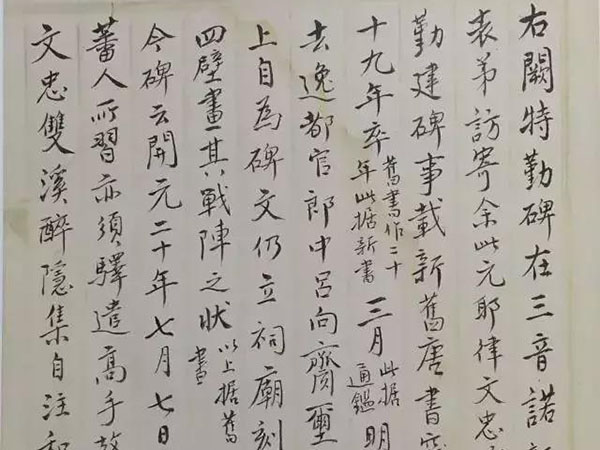 右闕特勤碑在三音諾
表弟訪寄余此元耶律文忠
勤建碑事載新舊唐書突
十九年卒舊書作二十年此据新書三月此据通鑑明
去逸都官郎中呂向齎璽
上自為碑文仍立祠廟刻
四壁畫其戰陣之狀以上据舊書
今碑云開元二十年七月七日
蕃人所習亦須驛遣高手
文忠雙溪醉隱集自注和